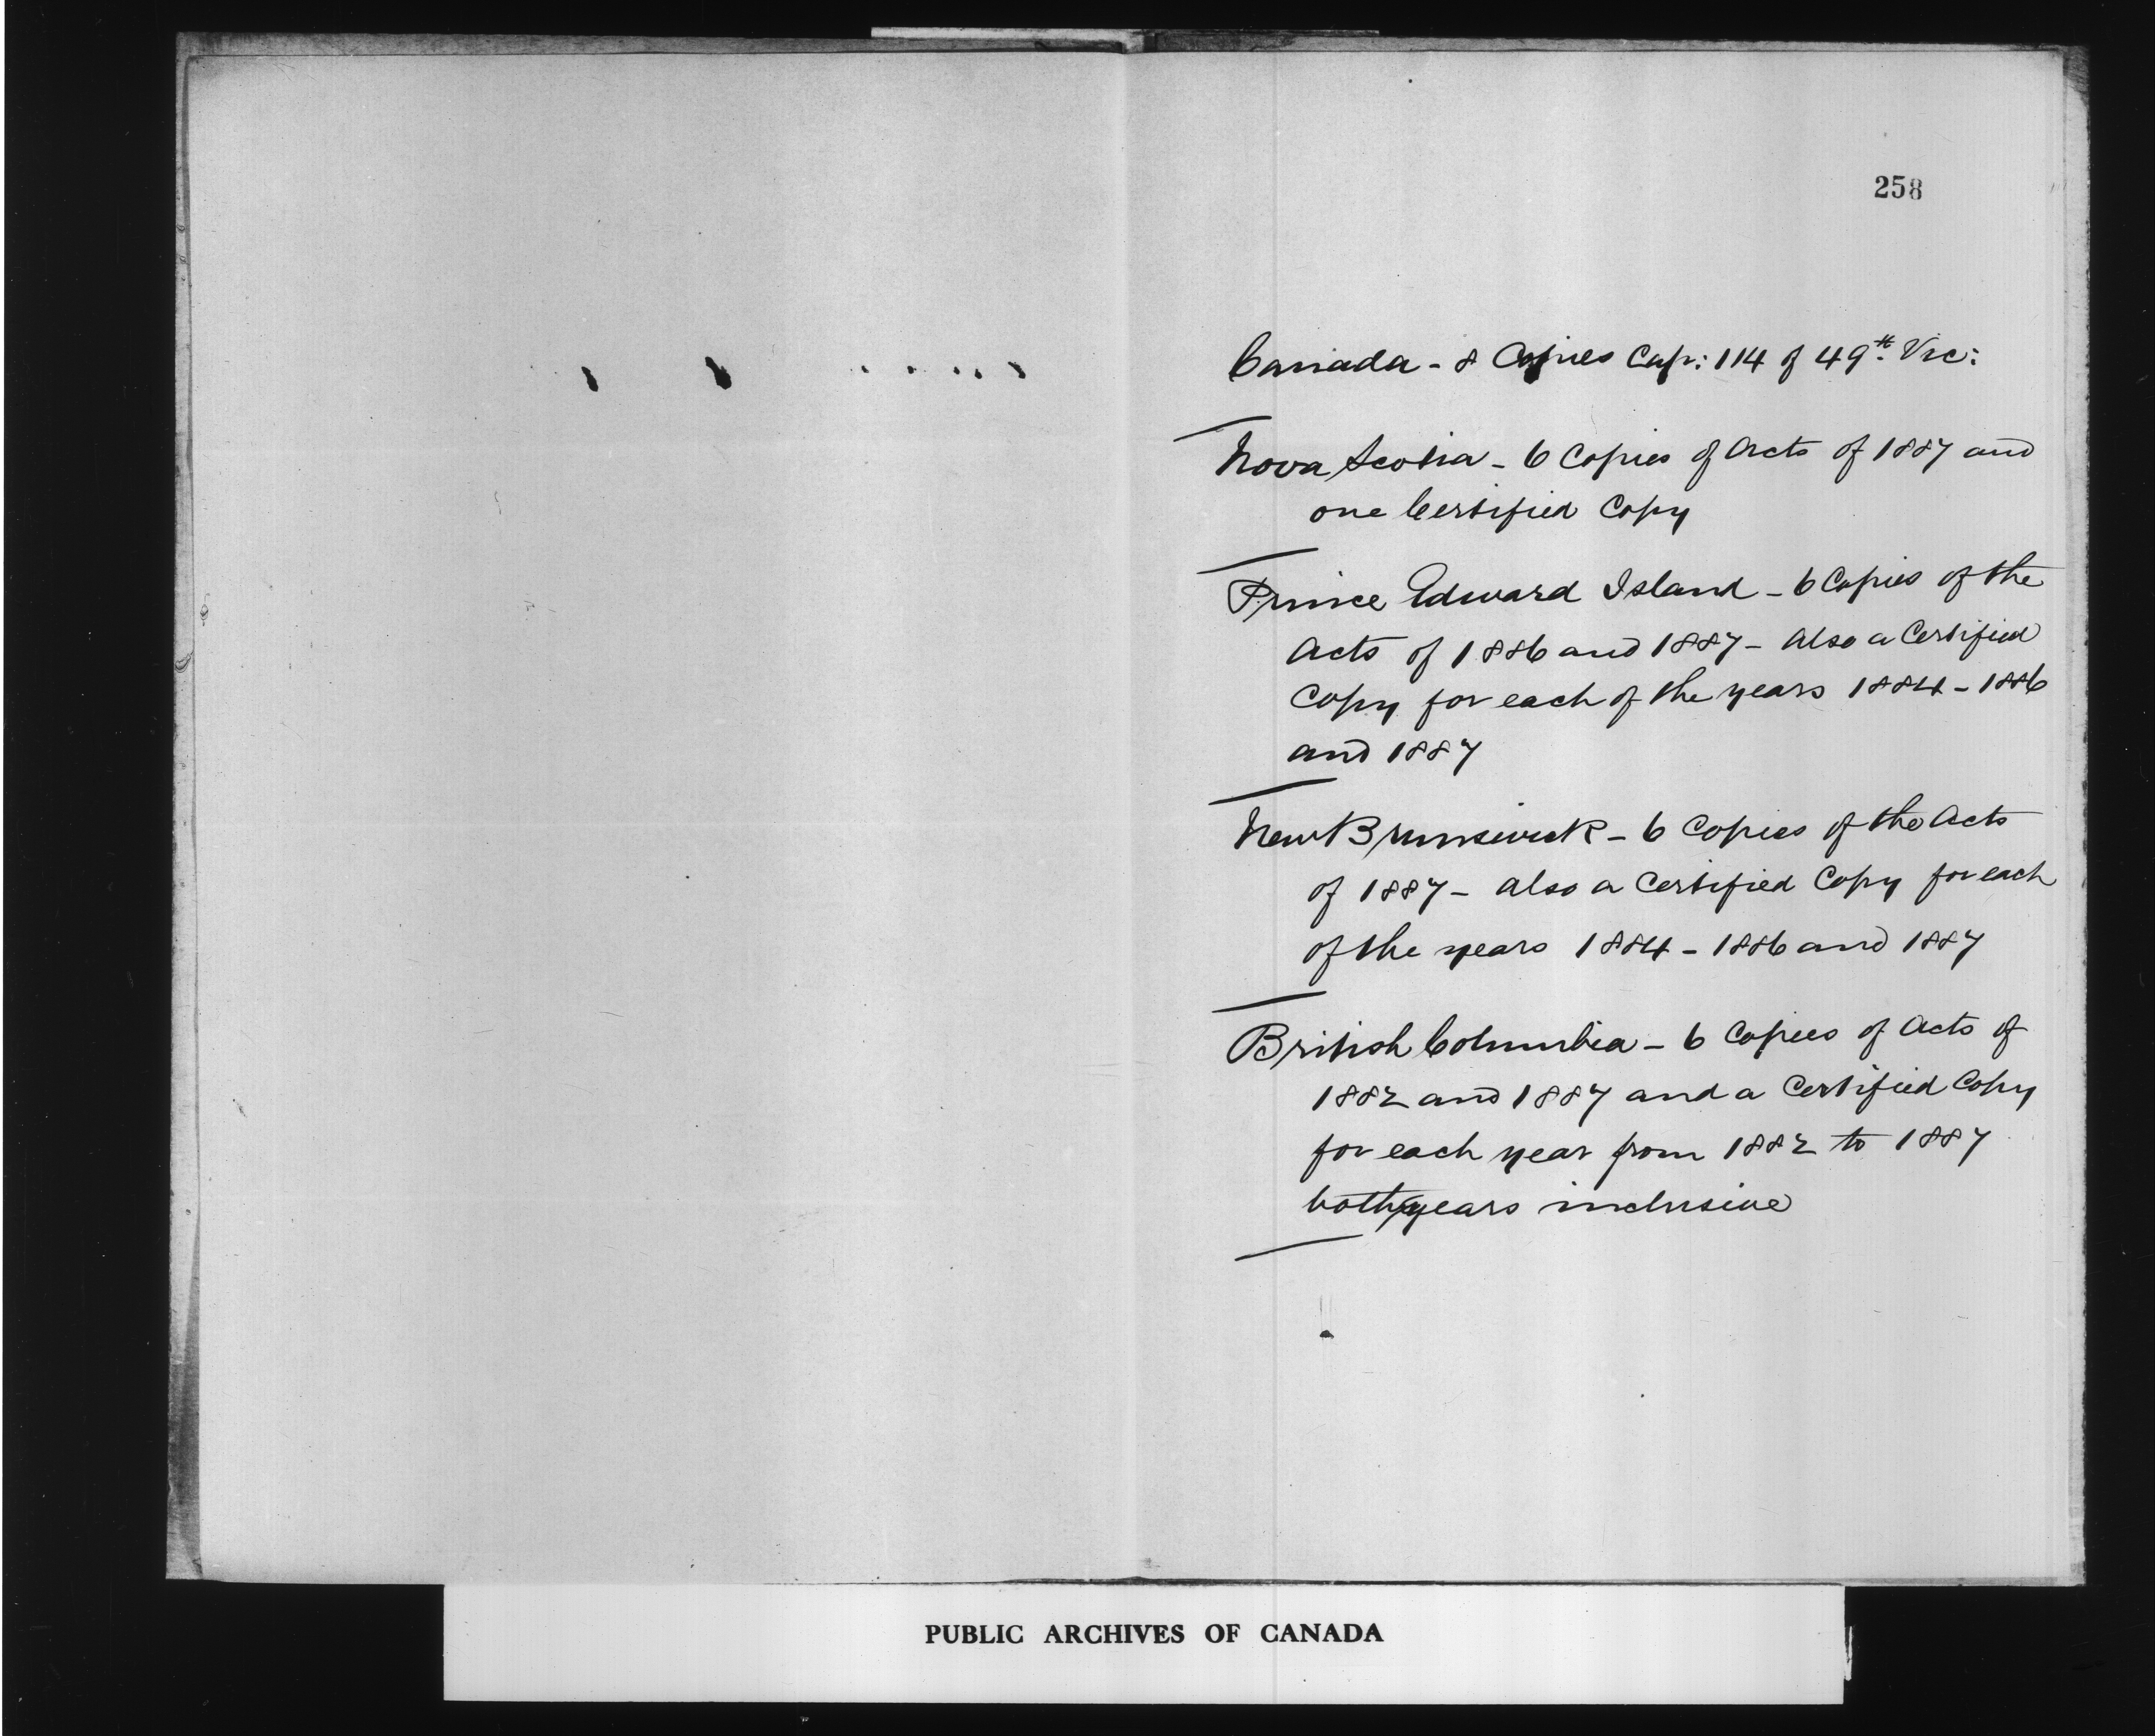 258
Canada - 8 Copies Cap: 114 of 49th Vic:
Nova Scotia - 6 Copies of Acts of 1887 and
one Certified Copy
Prince Edward Island - 6 Copies of the
Acts of 1886 and 1887 - Also a Certified
Copy for each of the years 1884 - 1886
and 1887
New Brunswick - 6 Copies of the Acts
of 1887 - also a Certified Copy for each
of the years 1884 - 1886 and 1887
British Columbia - 6 Copies of Acts of
1882 and 1887 and a Certified Copy
for each year from 1882 to 1887
both years inclusive
PUBLIC ARCHIVES OF CANADA